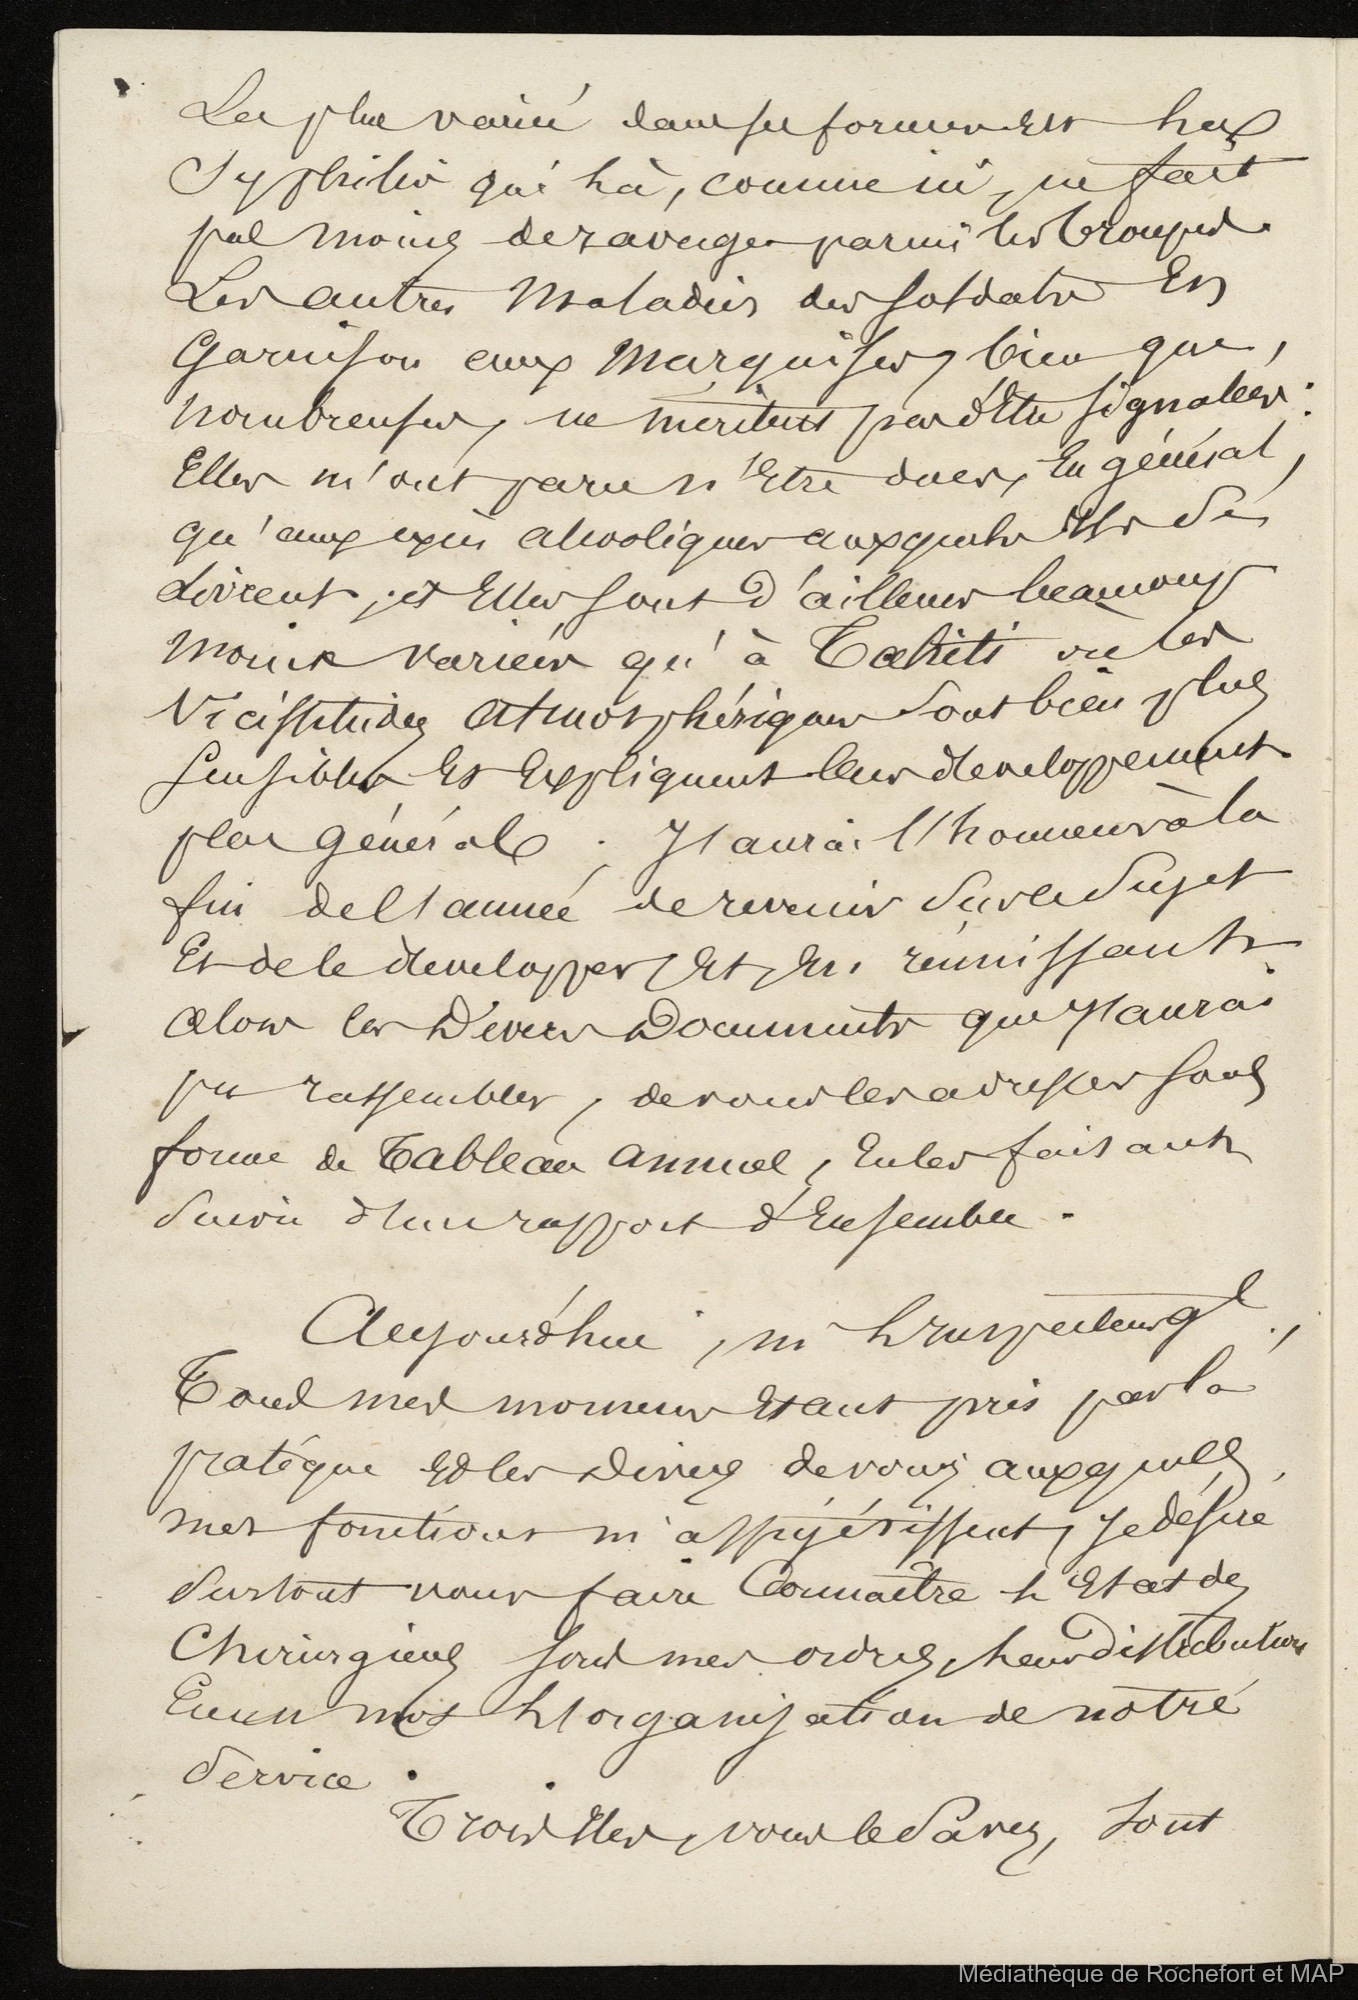 Les plus variés dans ses formes est la
Syphilis qui là, comme ici, ne fait
pas moins de ravages parmi les troupes.
Les autres Maladies des soldats En
Garnison aux Marquises, bien que,
nombreuses, ne méritent pas d'Etre signalées:
Elles m'ont paru n'Etre dues, En général,
qu'aux excès alcooliques auxquels Ils Se
Livrent, et Elles sont d'ailleurs beaucoup
Moins variées qu'à Tahiti où les
Vicissitudes Atmosphériques Sont bien plus
Sensibles Et Expliquent leur développement
plus général; J'aurai l'honneur à la
fin de l'année de revenir Sur le Sujet
Et de le développer, Et, En réunissant
alors les Divers Documents que j'aurai
pu rassembler, de vous les adresser sous
forme de Tableau annuel, En les faisant
Suivre d'un rapport d'Ensemble.
Aujourd'hui, m l'Inspecteur gl.,
Tous mes moments Etant pris par la
pratique Et les divers devoirs auxquels
mes fonctions m'assujétissent, Je désire
Surtout vous faire Connaître l'Etat des
Chirurgiens sous mes ordres, leur distribution
En un mot l'organisation de nôtre
Service.
Trois Iles, vous le Savez, Sont
Médiathèque de Rochefort et MAP